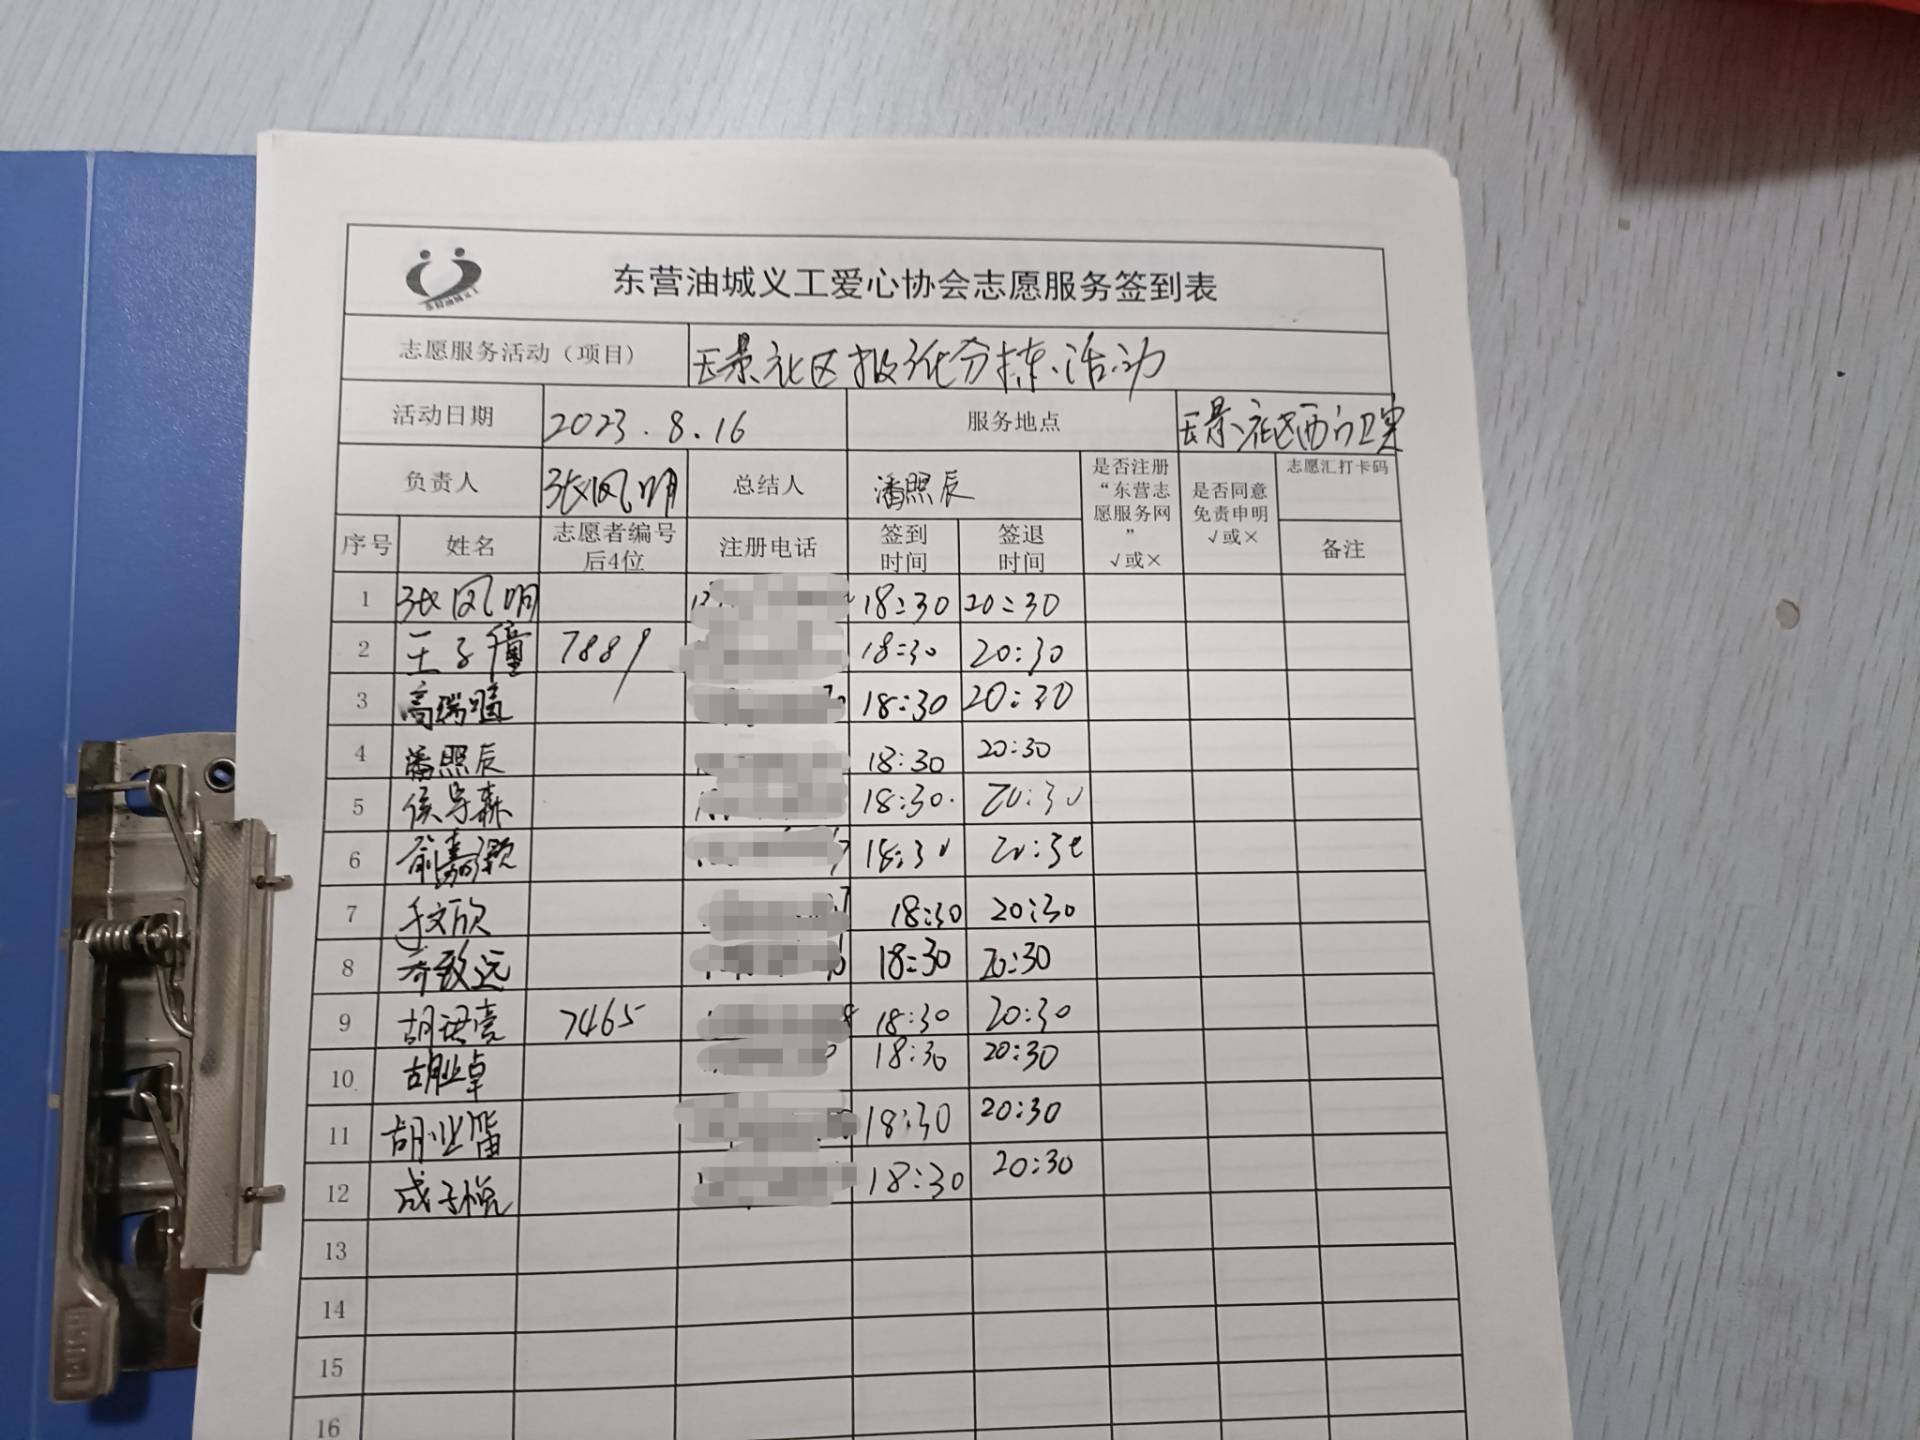 东营油城义工爱心协会志愿服务签到表
志愿服务活动（项目） 社区报纸分拣活动
活动日期 2023.8.16 服务地点
负责人 张凤明 总结人 潘照辰 是否注册“东营志愿服务网” √或× 是否同意免责申明 √或× 志愿汇打卡码
序号 姓名 志愿者编号后4位 注册电话 签到时间 签退时间 备注
1 张凤明 18:30 20:30
2 王子 7889 18:30 20:30
3 高瑞 18:30 20:30
4 潘照辰 18:30 20:30
5 侯 森 18:30 20:30
6 俞嘉颢 18:30 20:30
7 文欣 18:30 20:30
8 齐致远 18:30 20:30
9 胡 亮 7465 18:30 20:30
10 胡业卓 18:30 20:30
11 胡业 18:30 20:30
12 成子悦 18:30 20:30
13
14
15
16